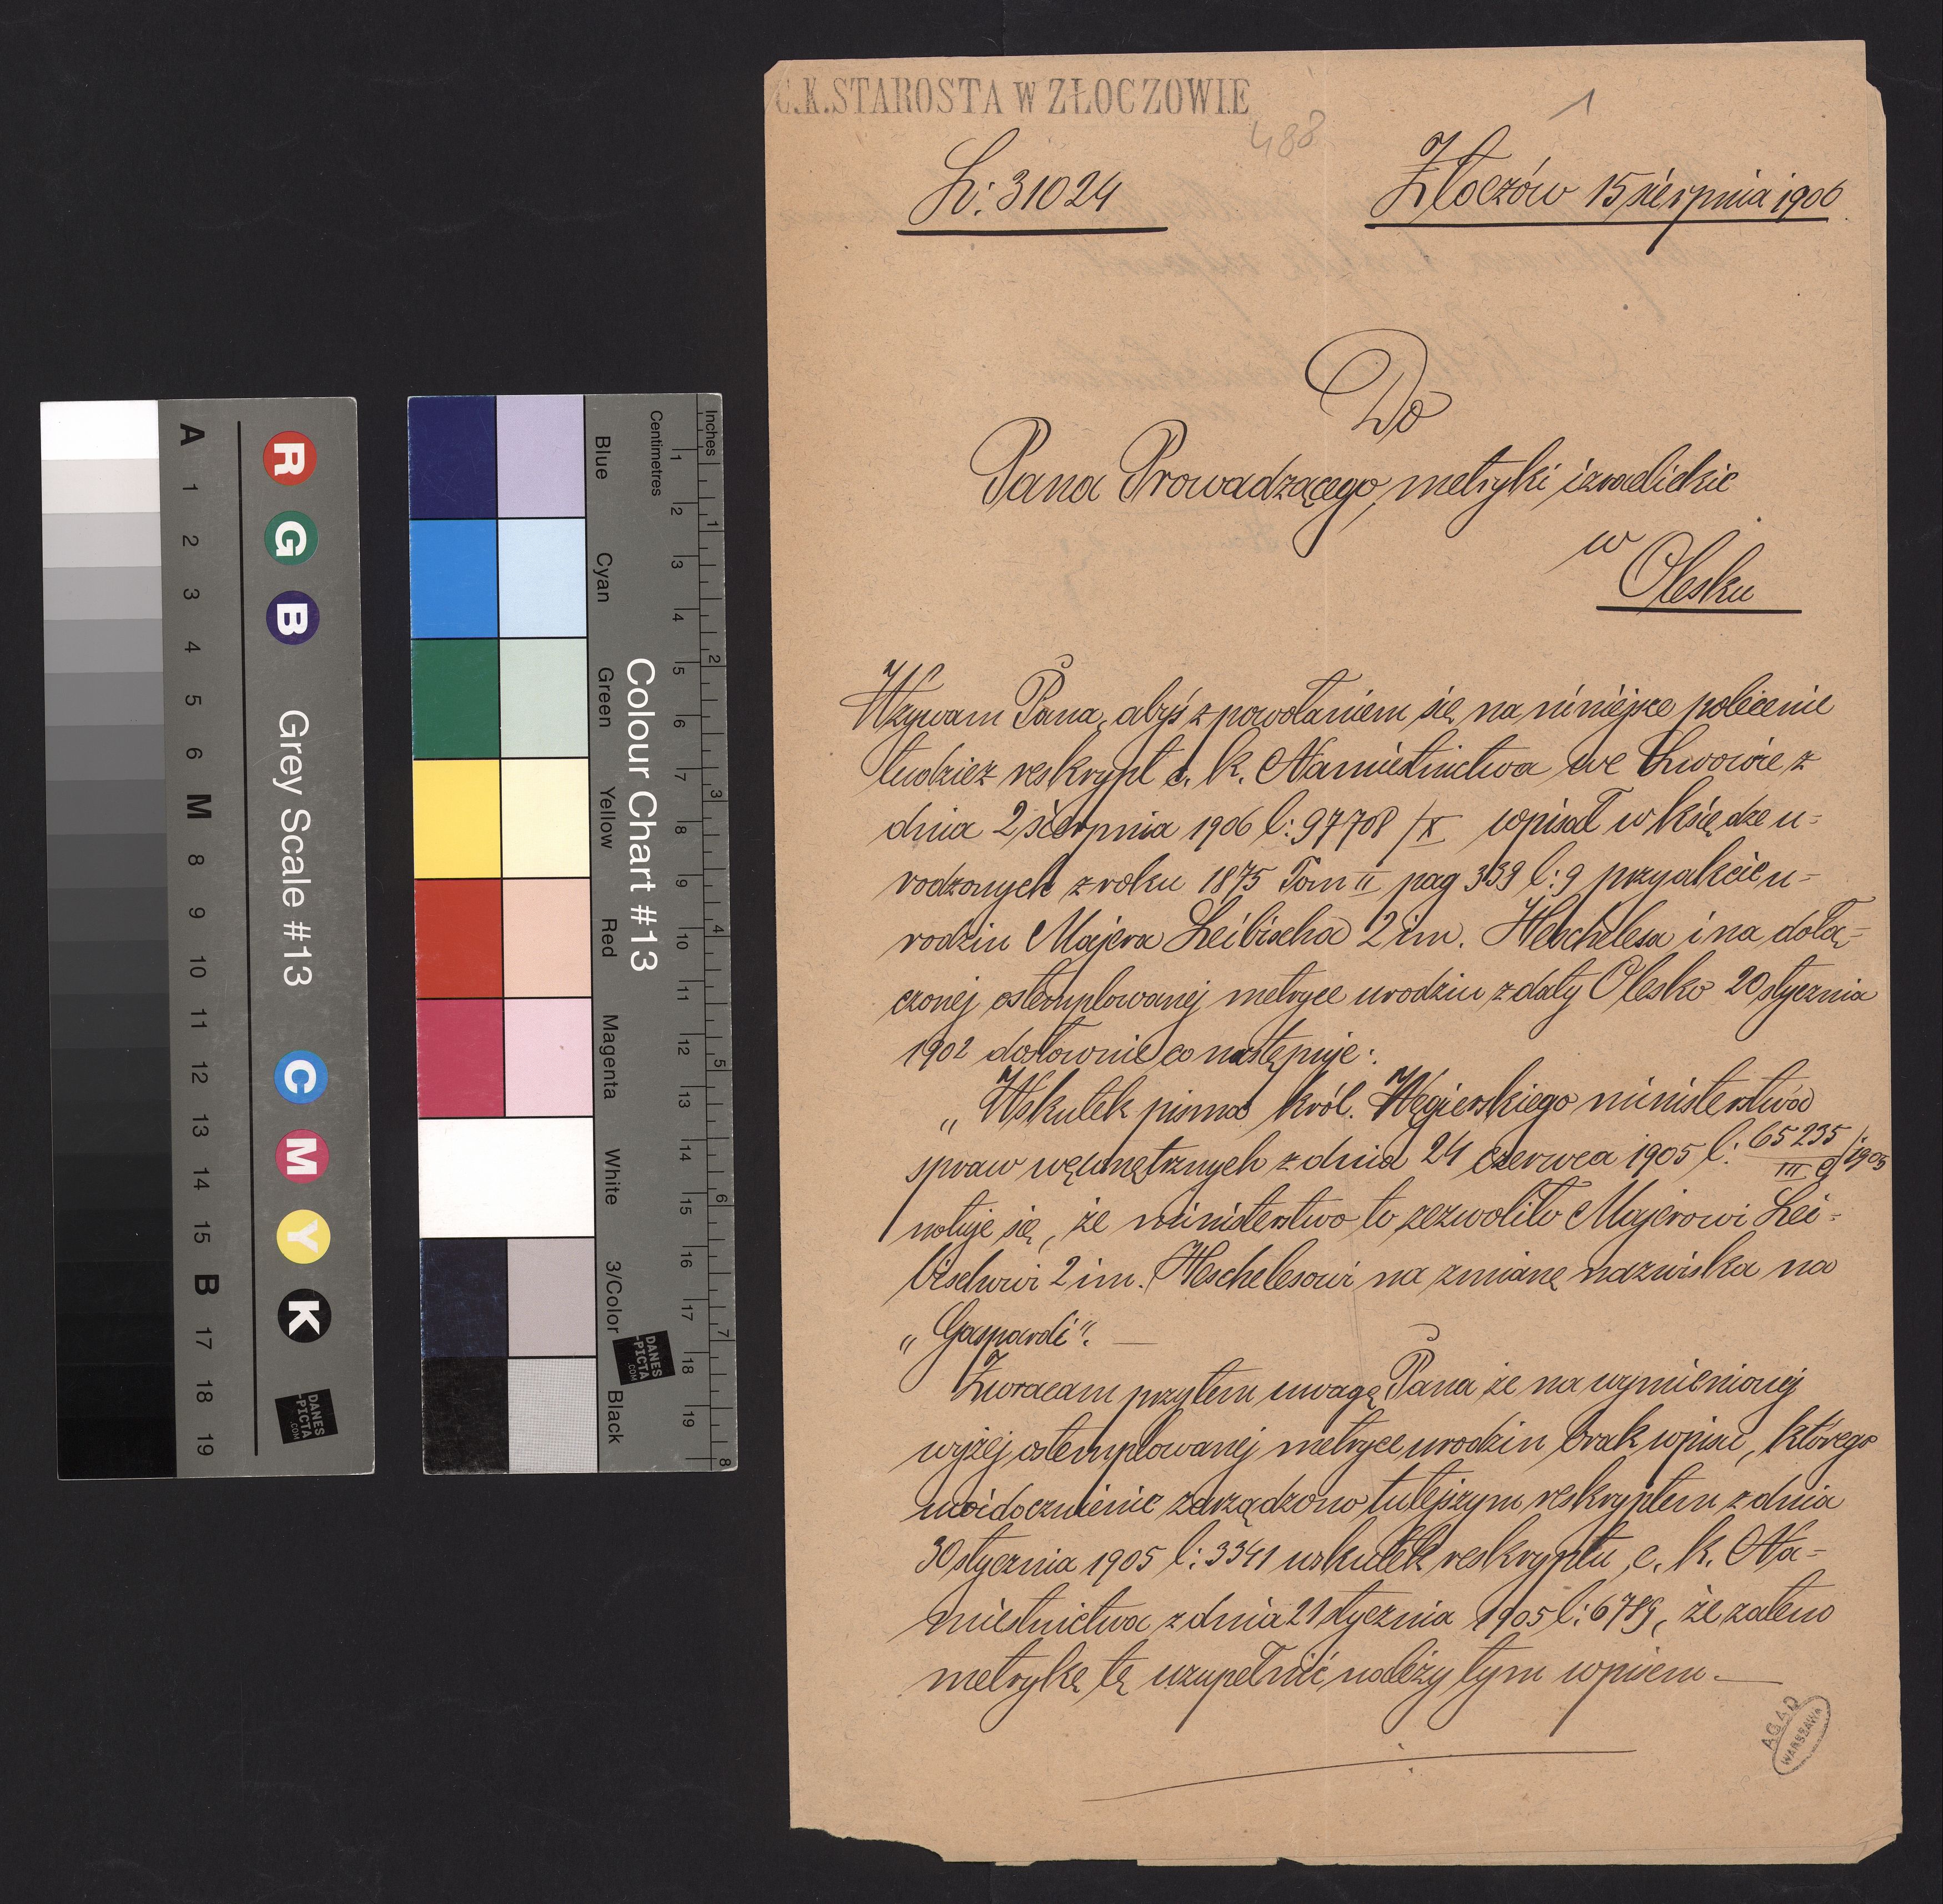 C.K.STAROSTA W ZŁOCZOWIE
488
1
L: 31024
Złoczów 15 sierpnia 1906
Do
Pana Prowadzącego, metryki izraelickie
w
Olesku
Wzywam Pana, abyś z powołaniem się na niniejsze polecenie
tudzież reskrypt c. k. Namiestnictwa we Lwowie z
dnia 2 sierpnia 1906 l: 97708 /X wpisał w księdze u-
rodzonych z roku 1875 Tom II pag 339 l: 9 przy akcie u-
rodzin Majera Leibischa 2 im. Heschelesa i na dołą-
czonej ostemplowanej metryce urodzin z daty Olesko 20 stycznia
1902 dosłownie co następuje:
„Wskutek pisma król. Węgierskiego ministerstwa
spraw wewnętrznych z dnia 24 czerwca 1905 l: 65235/III /1905
notuje się, że ministerstwo to zezwoliło Majerowi Lei-
bischowi 2 im. Heschelesowi na zmianę nazwiska na
„Gaspardi". —
Zwracam przytem uwagę Pana że na wymienionej
wyżej ostemplowanej metryce urodzin brak wpisu, którego
uwidocznienie zarządzono tutejszym reskryptem z dnia
30 stycznia 1905 l: 3341 wskutek reskryptu c. k. Na-
miestnictwa z dnia 21 stycznia 1905 l: 6789, że zatem
metrykę tę uzupełnić należy tym wpisem. —
AGAD
WARSZAWA
A 1 2 3 4 5 6 M 8 9 10 11 12 13 14 15 B 17 18 19
R G B Grey Scale #13 C M Y K
DANES
-PICTA
.COM
Blue Cyan Green Yellow Red Magenta White 3/Color Black
Colour Chart #13
DANES
-PICTA
.COM
Centimetres 1 2 3 4 5 6 7 8 9 10 11 12 13 14 15 16 17 18 19
Inches 1 2 3 4 5 6 7 8